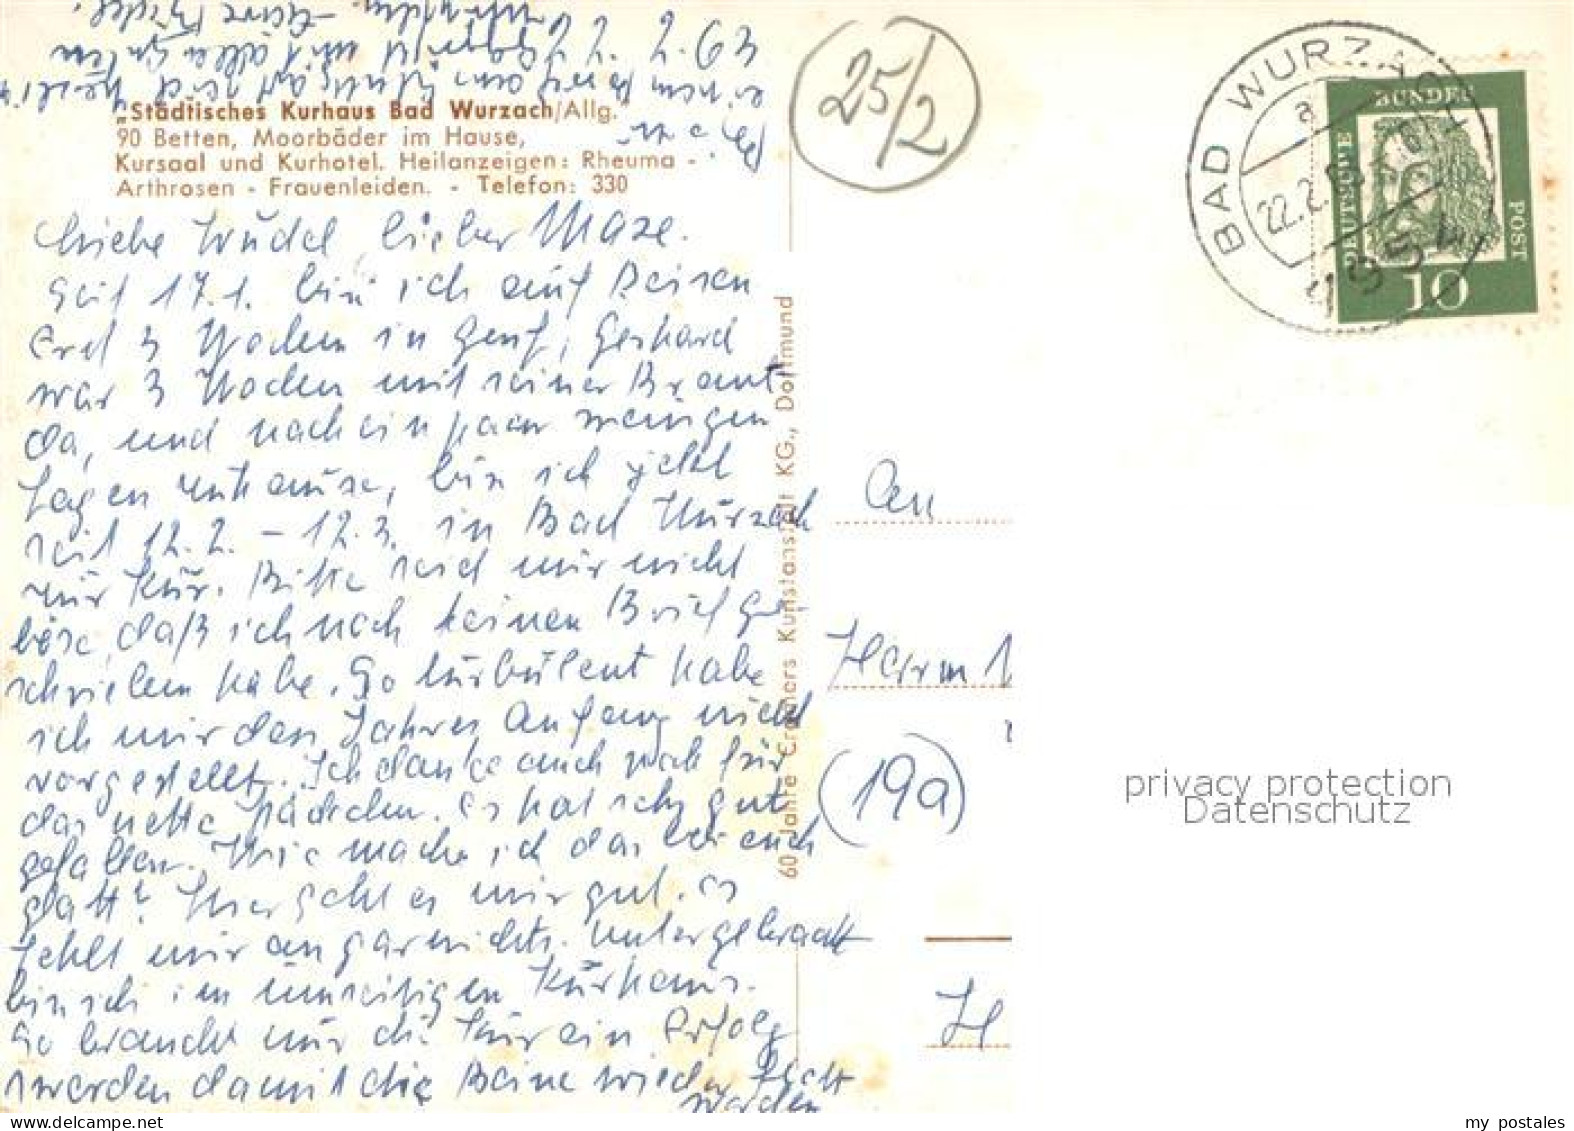 „Städtisches Kurhaus Bad Wurzach/Allg.
90 Betten, Moorbäder im Hause,
Kursaal und Kurhotel. Heilanzeigen: Rheuma -
Arthrosen - Frauenleiden. - Telefon: 330
lieber
seit 17.1. bin ich auf Reisen
Erst 3 Wochen in Genf, Gerhard
war 3 Wochen mit seiner Braut
da, und nach ein paar wenigen
Tagen zuhause, bin ich jetzt
seit 12.2. – 12.3. in Bad Wurzach
zur Kur. Bitte seid mir nicht
böse, daß ich noch keinen Brief ge-
schrieben habe. So turbulent habe
ich mir den Jahres Anfang nicht
vorgestellt. Ich danke auch noch für
das nette Päckchen. es hat sehr gut
gefallen. Wie mache ich das bei euch
glatt? Hier geht es mir gut. es
fehlt mir an gar nichts. Untergebracht
bin ich im umseitigen Kurhaus.
So braucht nur die Kur ein Erfolg
werden damit die Beine wieder glatt
werden
60 Jahre Cramers Kunstanstalt KG., Dortmund
25/2
BAD WURZACH
a
22.2.63
DEUTSCHE
BUNDES
POST
10
An
Herrn
(19a)
H
privacy protection
Datenschutz
my postales